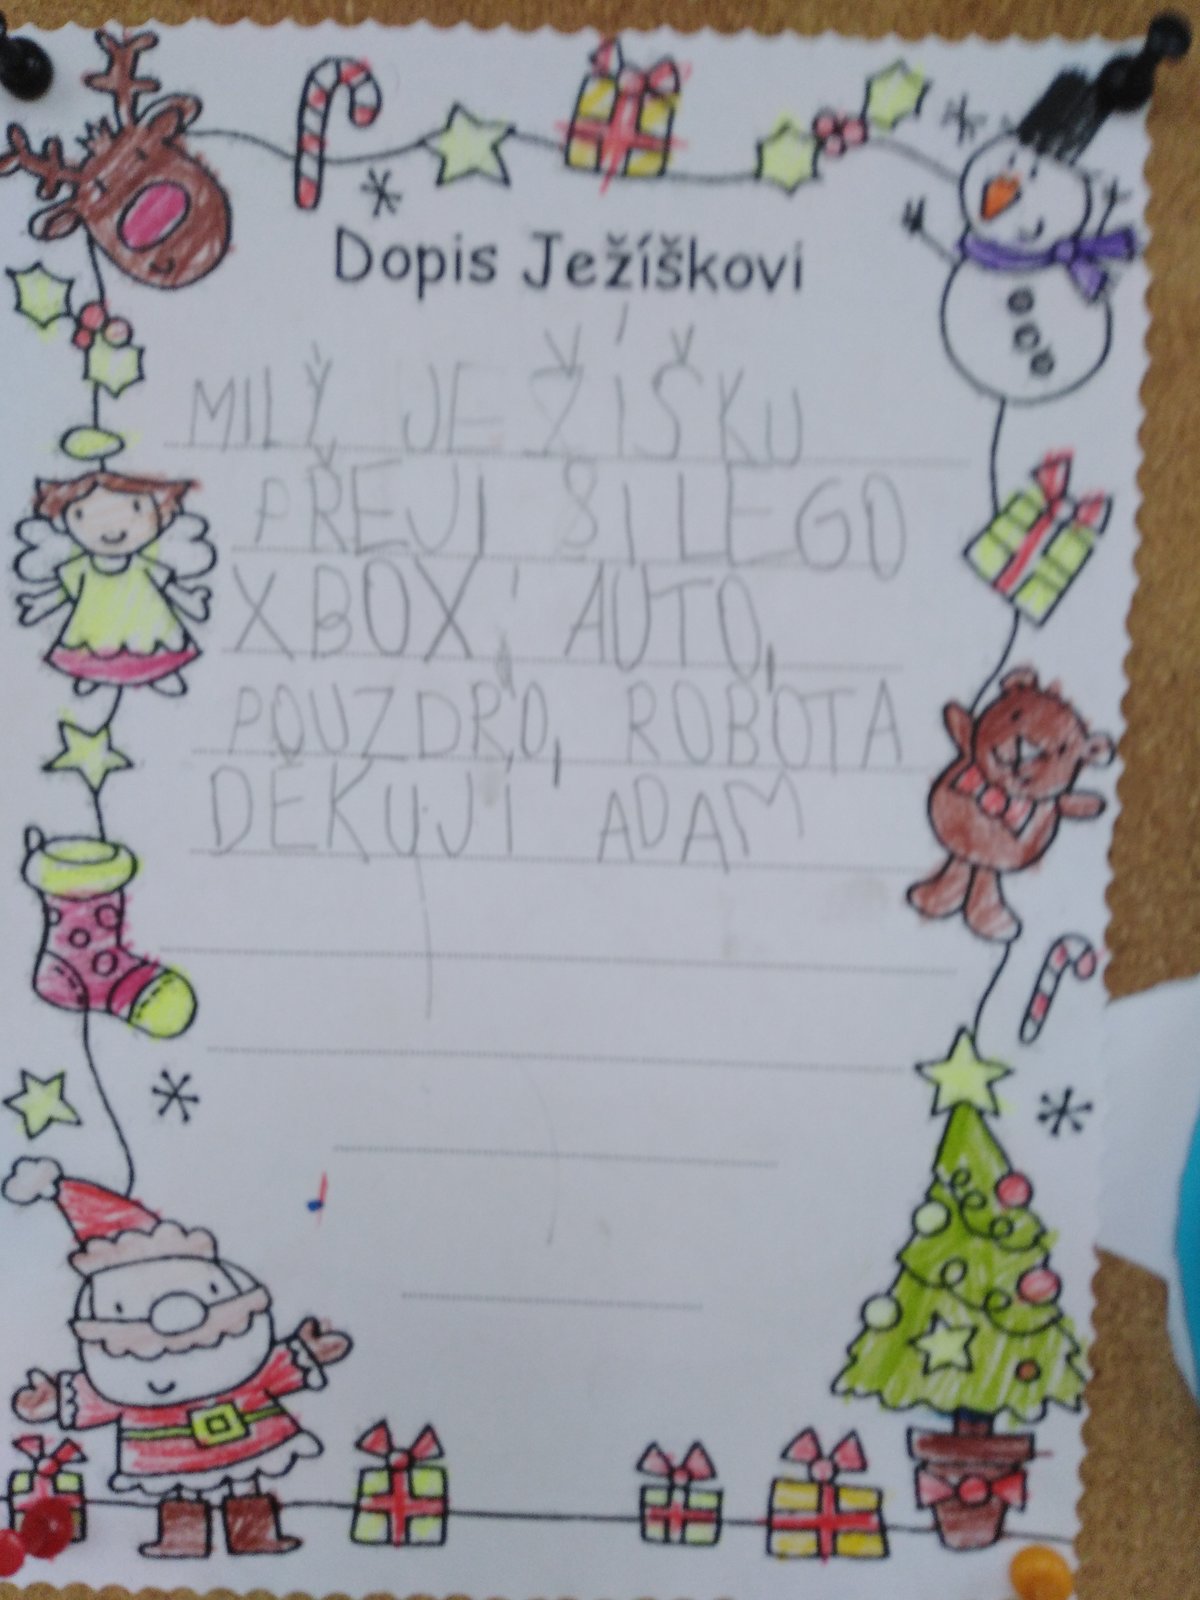 Dopis Ježíškovi
MILÝ JEŽÍŠKU
PŘEJI SI LEGO
XBOX, AUTO,
POUZDRO, ROBOTA
DĚKUJI ADAM